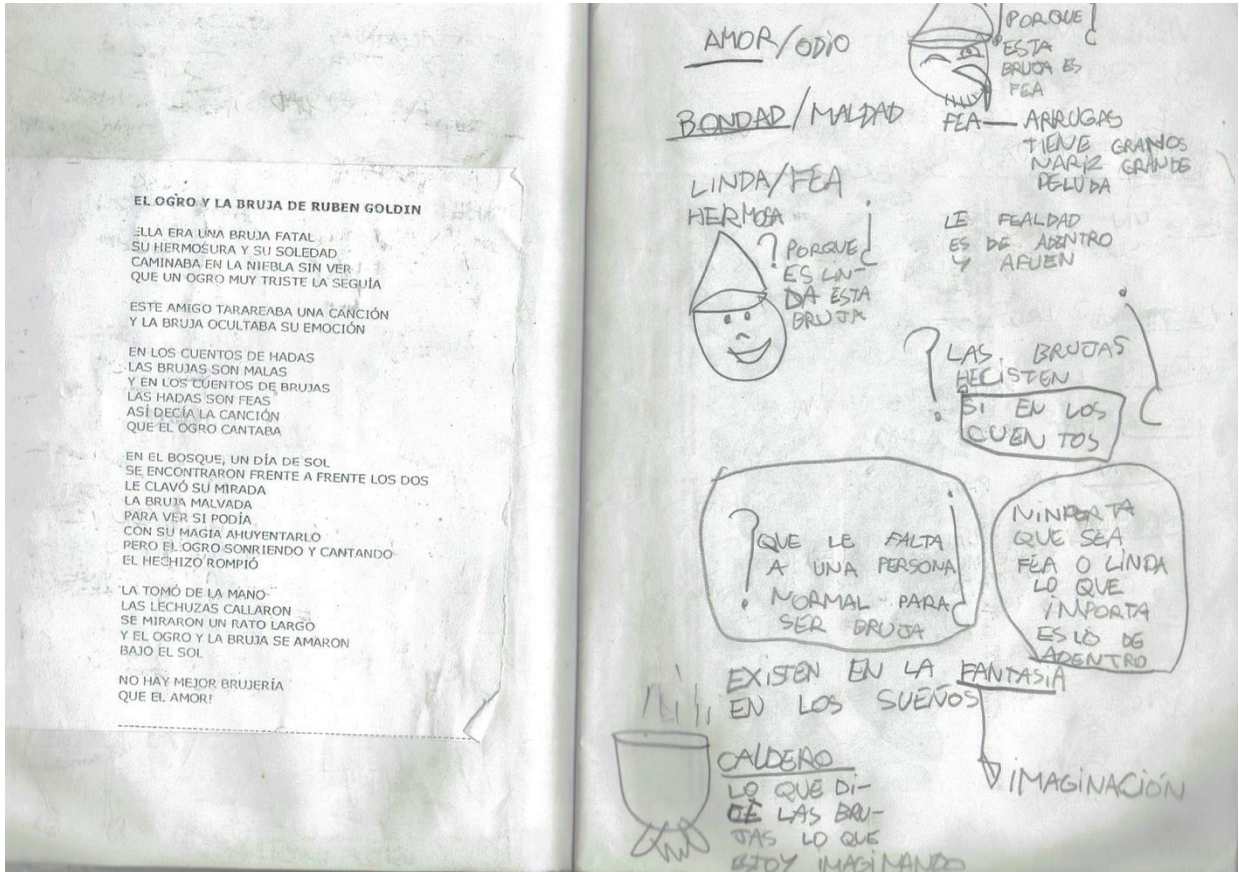 EL OGRO Y LA BRUJA DE RUBEN GOLDIN
ELLA ERA UNA BRUJA FATAL
SU HERMOSURA Y SU SOLEDAD
CAMINABA EN LA NIEBLA SIN VER
QUE UN OGRO MUY TRISTE LA SEGUÍA
ESTE AMIGO TARAREABA UNA CANCIÓN
Y LA BRUJA OCULTABA SU EMOCIÓN
EN LOS CUENTOS DE HADAS
LAS BRUJAS SON MALAS
Y EN LOS CUENTOS DE BRUJAS
LAS HADAS SON FEAS
ASÍ DECÍA LA CANCIÓN
QUE EL OGRO CANTABA
EN EL BOSQUE, UN DÍA DE SOL
SE ENCONTRARON FRENTE A FRENTE LOS DOS
LE CLAVÓ SU MIRADA
LA BRUJA MALVADA
PARA VER SI PODÍA
CON SU MAGIA AHUYENTARLO
PERO EL OGRO SONRIENDO Y CANTANDO
EL HECHIZO ROMPIÓ
LA TOMÓ DE LA MANO
LAS LECHUZAS CALLARON
SE MIRARON UN RATO LARGO
Y EL OGRO Y LA BRUJA SE AMARON
BAJO EL SOL
NO HAY MEJOR BRUJERÍA
QUE EL AMOR!
AMOR/ODIO
BONDAD/MALDAD
LINDA/FEA
HERMOSA
¿PORQUE
ES LIN-
DA ESTA
BRUJA?
¿PORQUE
ESTA
BRUJA ES
FEA?
FEA — ARRUGAS
TIENE GRANOS
NARIZ GRANDE
PELUDA
LE FEALDAD
ES DE ADENTRO
Y AFUEN
¿LAS BRUJAS
HECISTEN?
SI EN LOS
CUENTOS
¿QUE LE FALTA
A UNA PERSONA
NORMAL PARA
SER BRUJA?
NINPORTA
QUE SEA
FEA O LINDA
LO QUE
IMPORTA
ES LO DE
ADENTRO
EXISTEN EN LA FANTASIA
EN LOS SUEÑOS
IMAGINACIÓN
CALDERO
LO QUE DI-
CE LAS BRU-
JAS LO QUE
ETOY IMAGINANDO